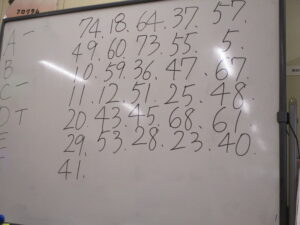 プログラム
A － 74. 18. 64. 37. 57.
49. 60. 73. 55. 5.
B 10. 59. 36. 47. 67.
C － 11. 12. 51. 25. 48.
D T 20. 43. 45. 68. 61
E 29. 53. 28. 23. 40.
41.